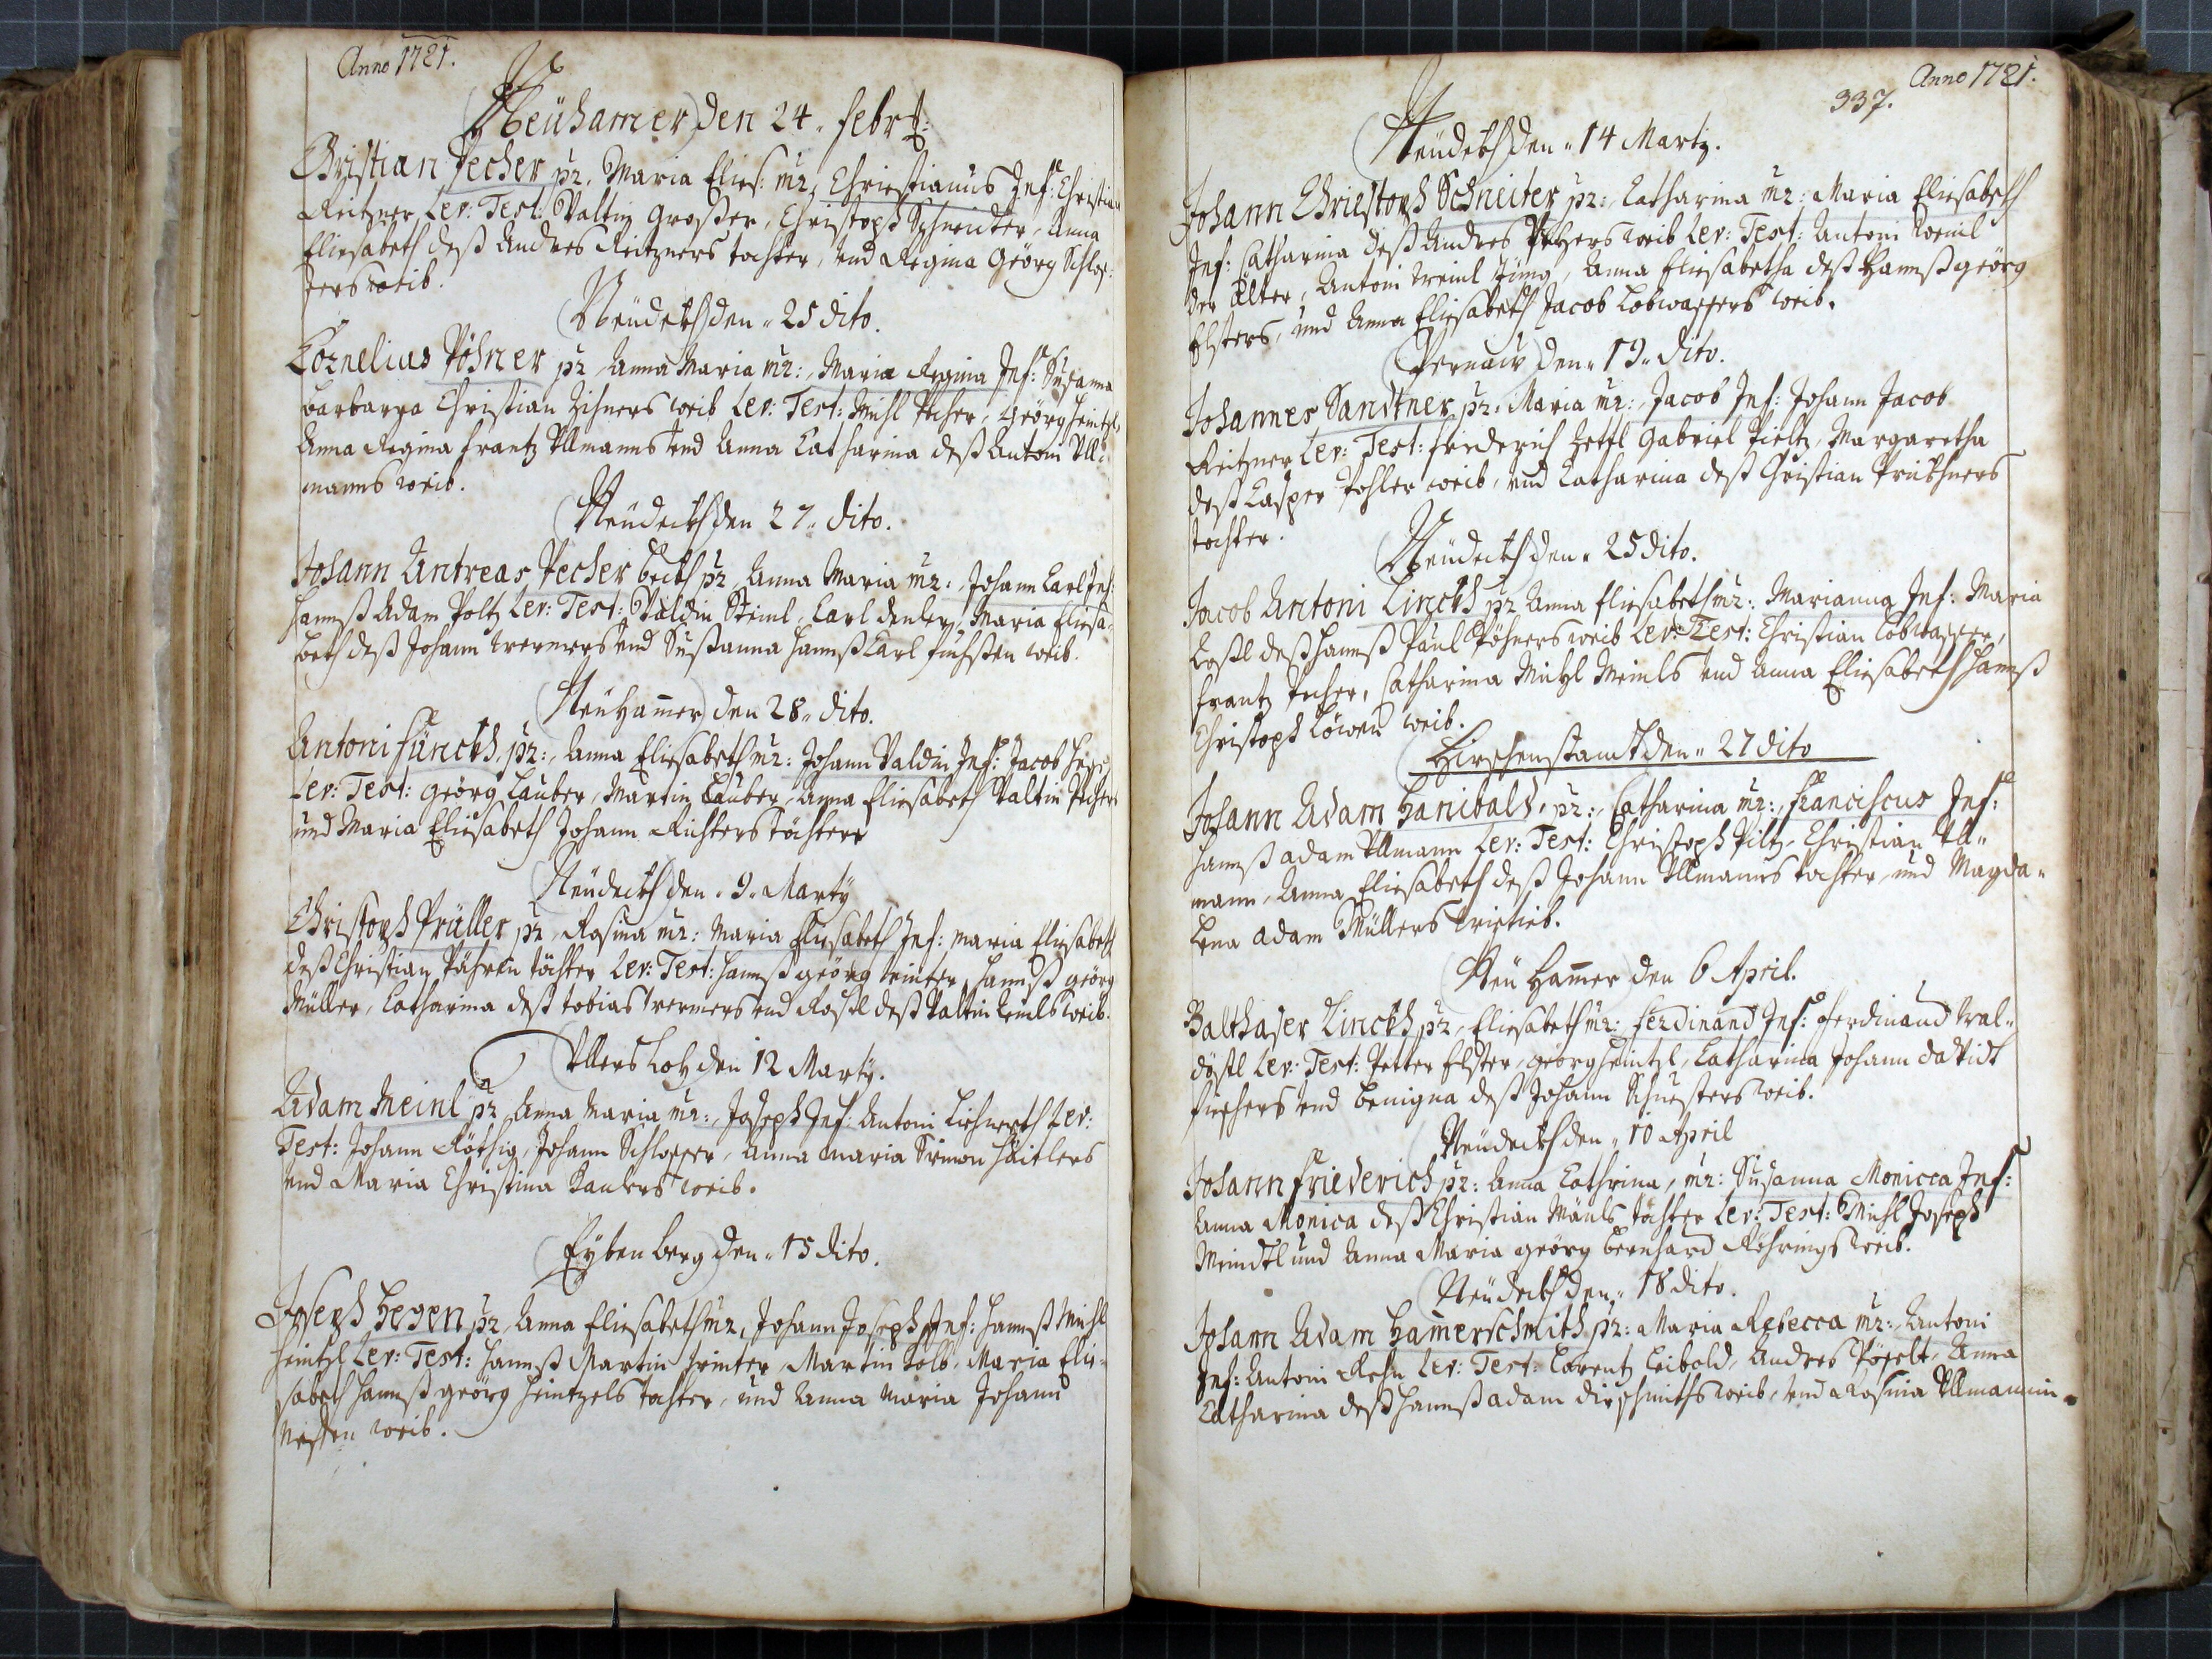 Anno 1721.
Neühamer den 24. febr:
Christian Pecher pr. Maria Elies: mr, Christianus Inf: Christian
Reitzner Lev: Test: Valtin Großer, Christoph Schneider, Anna
Eliesabeth deß Andres Reitzners tochter, und Regina Georg Schlos-
sers weib.
Neüdeckh den 25 dito.
Cornelius Pöhner pr Anna Maria mr:, Maria Regina Inf: Susanna
Barbarya Christian Zihners weib Lev: Test: Michl Pecher, Georg Heintzl,
Anna Regina frantz Ullmanns und Anna Catharina deß Antoni Ull-
manns weib.
Neüdeckh den 27. dito.
Johann Antreas Pecher beckh pr Anna Maria mr: Johann Carl Inf:
Hannß Adam Poltz Lev: Test: Valdin Steinl, Carl, Maria Eliesa-
beth deß Johann und Sußanna Hannß Carl fuchßen weib.
Neühamer den 28. dito.
Antoni Fünckh. pr:, Anna Eliesabeth mr: Johann Valdin Inf: Jacob
Lev: Test: Georg Lauber, Martin Lauber, Anna Eliesabeth Valtin Pechers
und Maria Eliesabeth Johann Richters töchter
Neüdeckh den. 9. Martÿ
Christoph Prüller pr, Rosina mr: Maria Eliesabeth Inf: maria Eliesabeth
deß Christian töchter Lev: Test: Hannß georg, Hannß georg
Müller, Catharina deß tobias und Rosl deß Valtin weib.
Ullersloh den 12 Martÿ.
Adam Meinl pr Anna Maria mr:, Joseph Inf: Antoni Lev:
Test: Johann Röthig, Johann Schlosser, Anna Maria Simon Häitlers
und Maria Christina weib.
Eÿbenberg den. 15 dito.
Joseph Hegen pr Anna Eliesabeth mr, Johann Joseph Inf: Hannß Michl
Heintzl Lev: Test: Hannß Martin, Martin Kolb, Maria Elie-
sabeth Hannß georg Heintzels tochter, und Anna Maria Johann
weib.
Anno 1721.
337.
Neüdeckh den. 14 Martÿ.
Johann Christoph Schneiter pr:, Catharina mr: Maria Eliesabeth
Inf: Catharina deß Andres weib Lev: Test: Antoni
der Älter, Antoni Jung, Anna Eliesabetha deß Hannß georg
Elsters, und Anna Eliesabeth Jacob Lobwassers weib.
den. 19. dito.
Johannes Sandtner pr: Maria mr:, Jacob Inf: Johann Jacob
Reitzner Lev: Test: friederich Zettl Gabriel Pieltz, Margaretha
deß Casper Pohler weib, und Catharina deß Christian
tochter.
Neüdeckh den. 25 dito.
Jacob Antoni Linckh pr Anna Eliesabeth mr:, Marianna Inf: Maria
Rosl deß Hannß Paul Pöhners weib Lev: Test: Christian Lobwasser,
frantz Pecher, Catharina Michl Meinls und Anna Eliesabeth Hannß
Christoph Löwen weib.
Hirschenstamt den. 27 dito
Johann Adam Hanibald, pr:, Catharina mr:, Franciscus Inf:
Hannß adam Ullmann Lev: Test: Christoph Piltz, Christian Ull-
mann, Anna Eliesabeth deß Johann Ullmanns tochter, und Magda-
lena Adam Müllers.
Neü Hamer den 6 April.
Balthaser Linckh pr, Eliesabeth mr: Ferdinand Inf: Ferdinand
Lev: Test: Petter Elster, georg Heintzl, Catharina Johann david
fischers und Benigna deß Johann Schusters weib.
Neüdeckh den. 10 April
Johann Friederich pr: Anna Cathrina, mr: Susanna Monicca Inf:
Anna Monica deß Christian Tochter Lev: Test: Michl Joseph
Meindl und Anna Maria georg bernhard Röhrings weib.
Neüdeckh den. 18 dito.
Johann Adam Hamerschmith pr: Maria Rebecca mr:, Antoni
Inf: Antoni Lev: Test: Lorentz Leibold, Andres, Anna
Catharina deß Hannß adam weib, und Rosina Ullmannin.